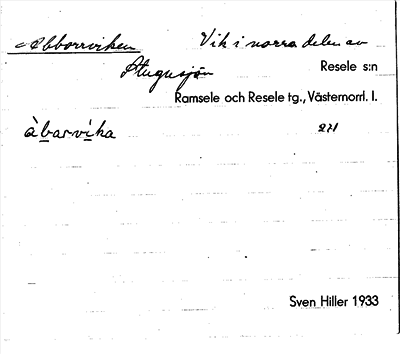 Abborrviken Vik i norra delen av
Stugusjön Resele s:n
Ramsele och Resele tg., Västernorrl. l.
àbarvika 271
Sven Hiller 1933